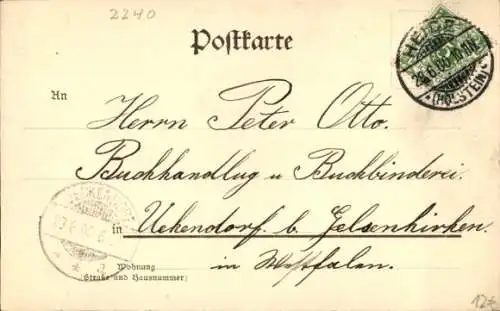 2240
Postkarte
HEIDE
(HOLSTEIN)
An
Herrn Peter Otto.
Buchhandlug u Buchbinderei.
in Uekendorf b. Gelsenkirken.
in Westfalen.
Wohnung
(Straße und Hausnummer)
12€